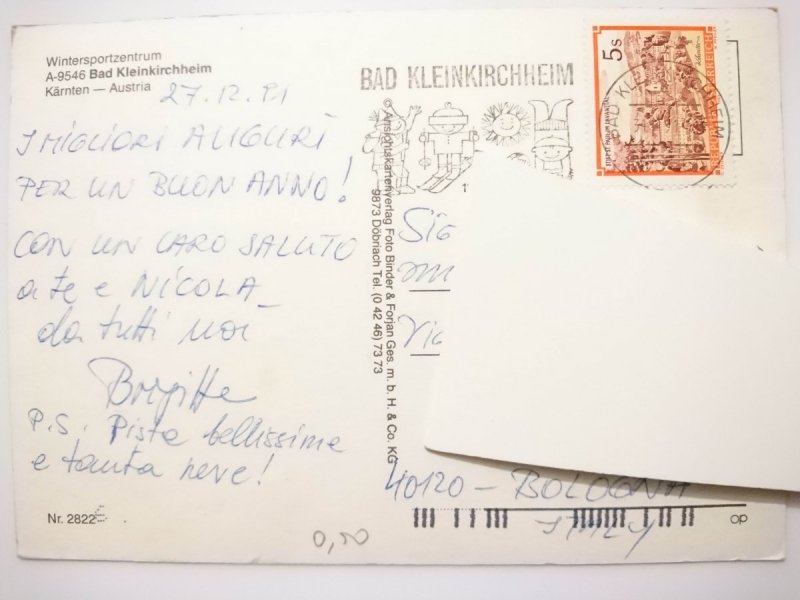 Wintersportzentrum
A-9546 Bad Kleinkirchheim
Kärnten — Austria
27.12.91
I MIGLIORI AUGURI
PER UN BUON ANNO!
CON UN CARO SALUTO
a te e NICOLA
da tutti noi
Brigitte
P.S. Piste bellissime
e tanta neve!
Nr. 2822
0,50
© Ansichtskartenverlag Foto Binder & Forjan Ges. m. b. H. & Co. KG
9873 Döbriach Tel. (0 42 46) 73 73
BAD KLEINKIRCHHEIM
5 S
REPUBLIK ÖSTERREICH
Sig
Via
40120 - BOLOGNA
ITALY
op